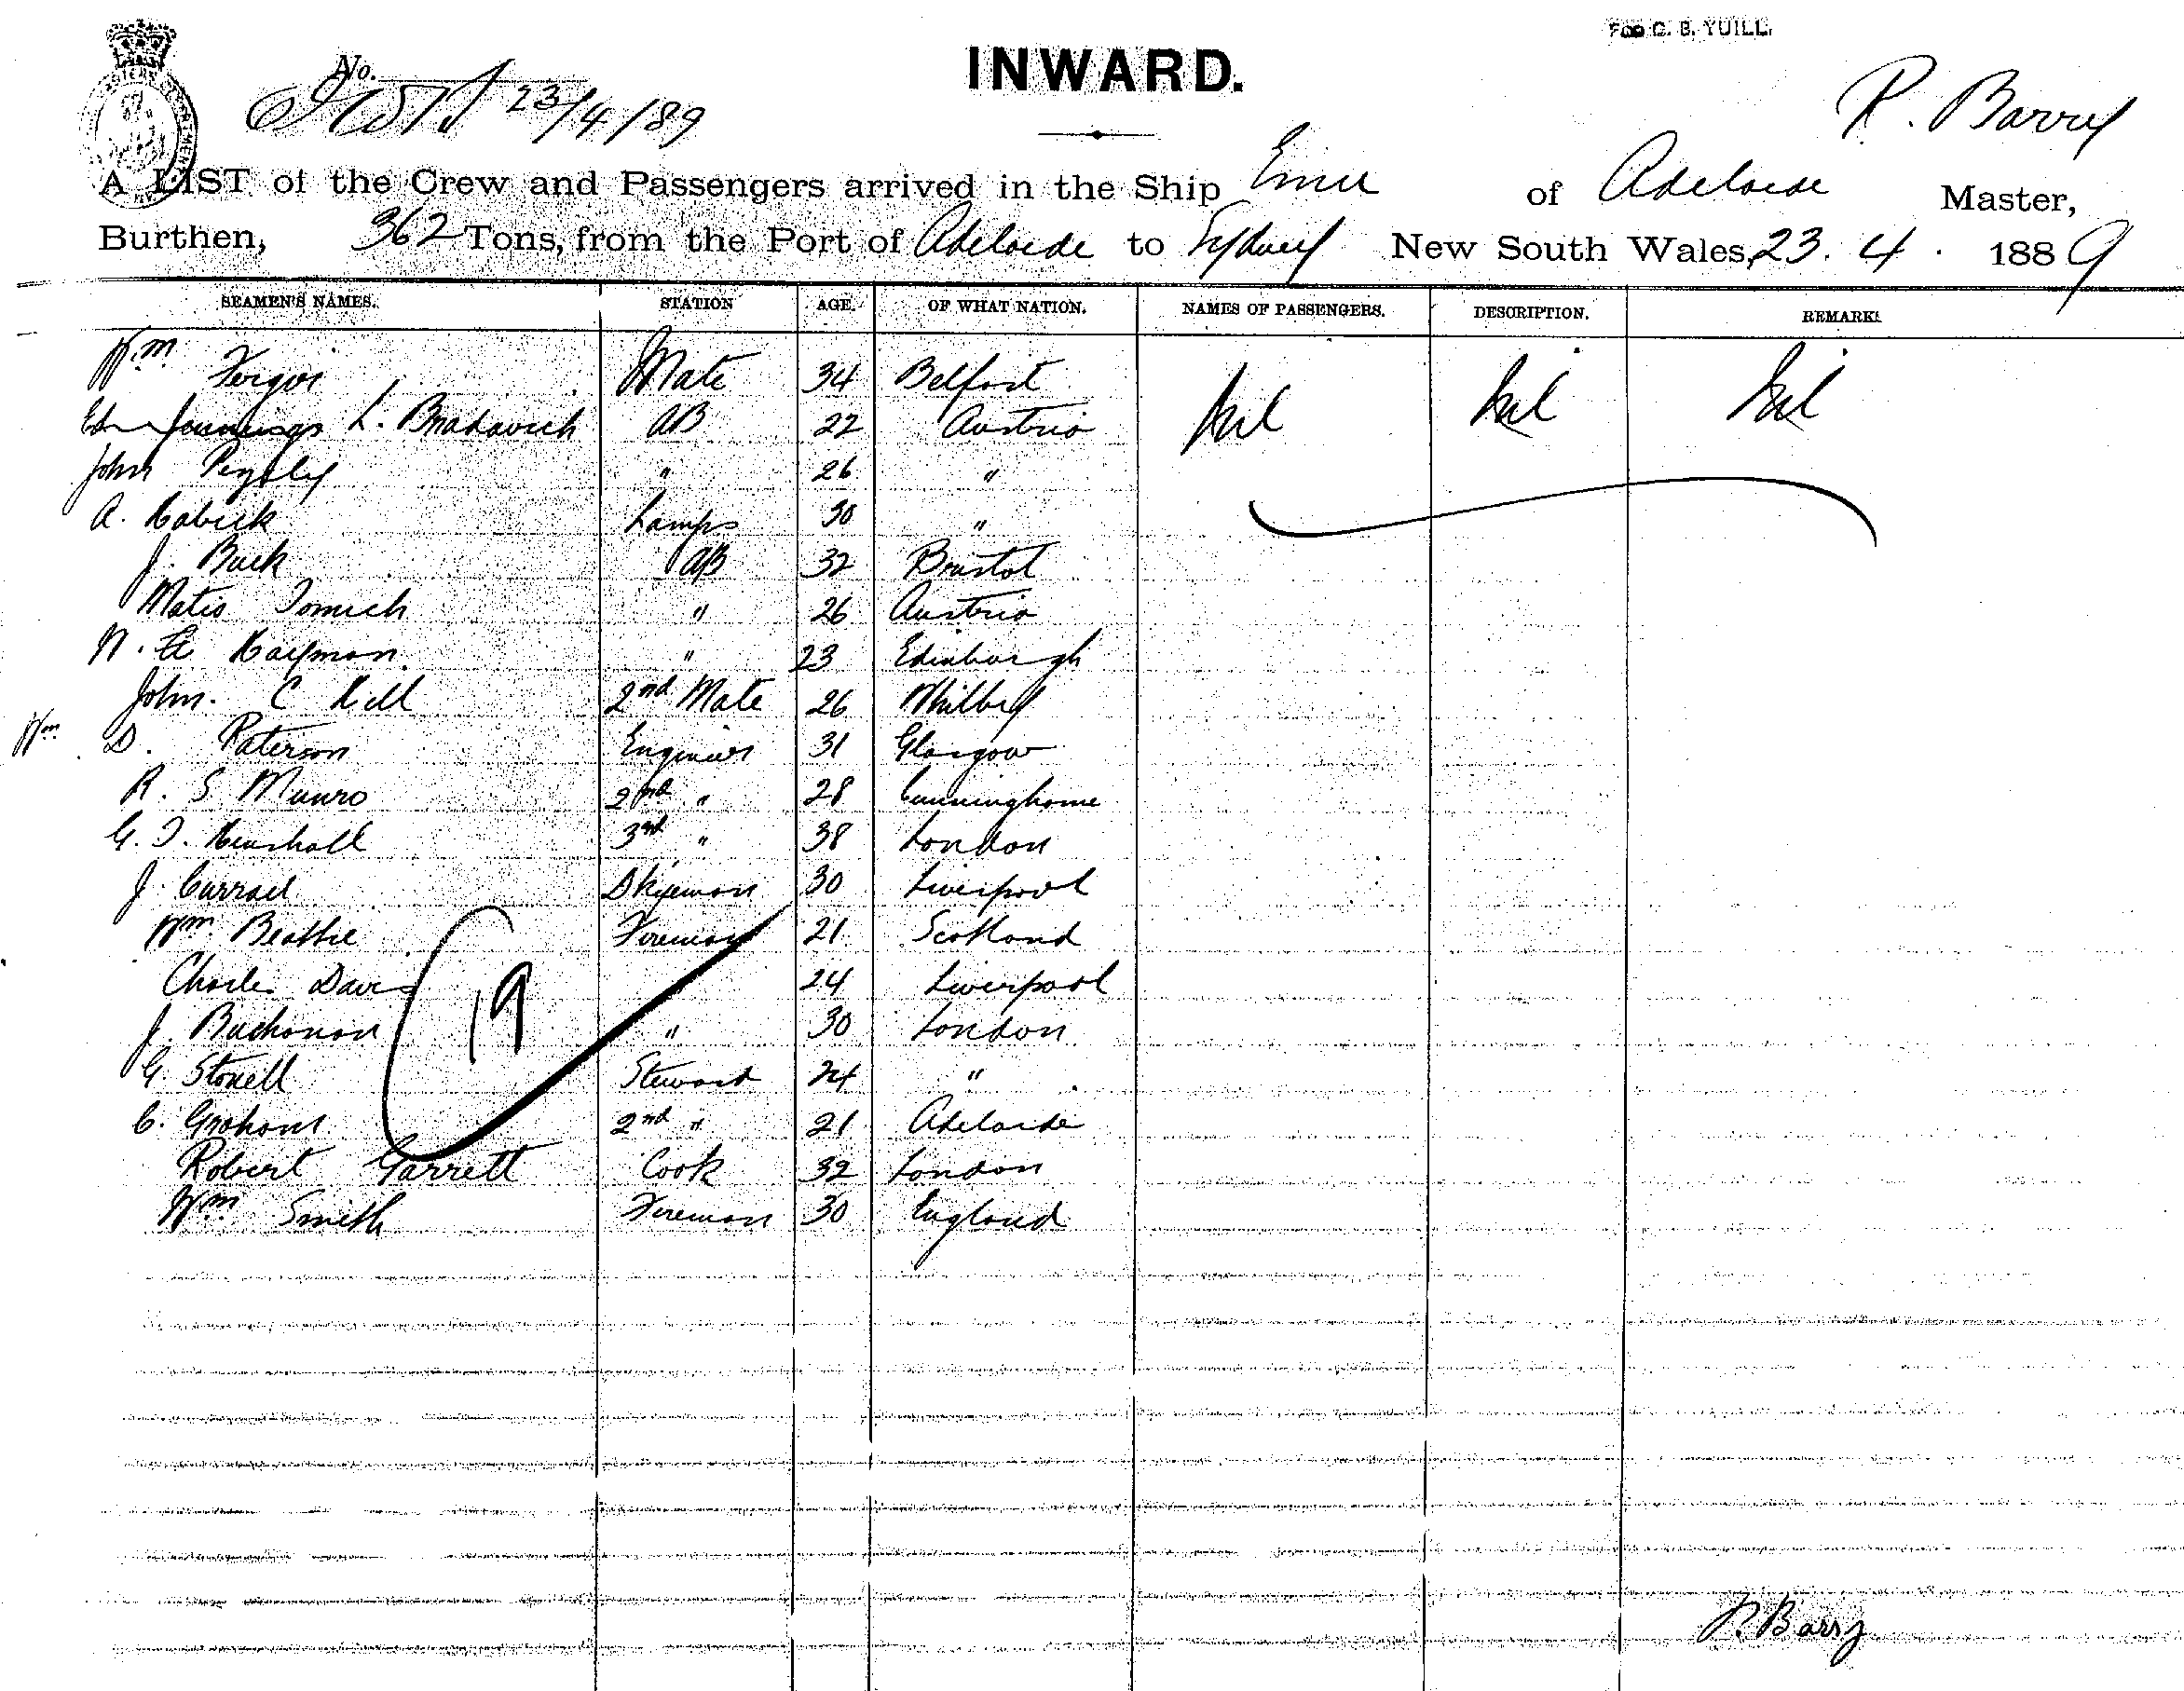 FOR G. B. YUILL.
INWARD.
No.
23/4/89
R. Barry
A LIST of the Crew and Passengers arrived in the Ship Emu of Adelaide Master,
Burthen, 362 Tons, from the Port of Adelaide to Sydney New South Wales, 23. 4. 1889
SEAMEN'S NAMES. STATION AGE. OF WHAT NATION. NAMES OF PASSENGERS. DESCRIPTION. REMARKS
Wm Fergus Mate 34 Belfast Nil Nil Nil
Jennings L. Bradavich AB 22 Austria
John " 26 "
A. Lamps 30 "
J. Buck AB 32 Bristol
Matio Tomich " 26 Austria
Hayman " 23 Edinburgh
John. C Hill 2nd Mate 26 Whitby
Wm D. Paterson Engineer 31 Glasgow
R. S Munro 2nd " 28 Cunninghame
G. T. 3rd " 38 London
J. 30 Liverpool
Wm Beattie Fireman 21 Scotland
Charles Davis 24 Liverpool
J. Buchanan " 30 London
19
G. Stovell Steward 24 "
C. Graham 2nd " 21 Adelaide
Robert Garrett Cook 32 London
Wm Smith Fireman 30 England
P. Barry